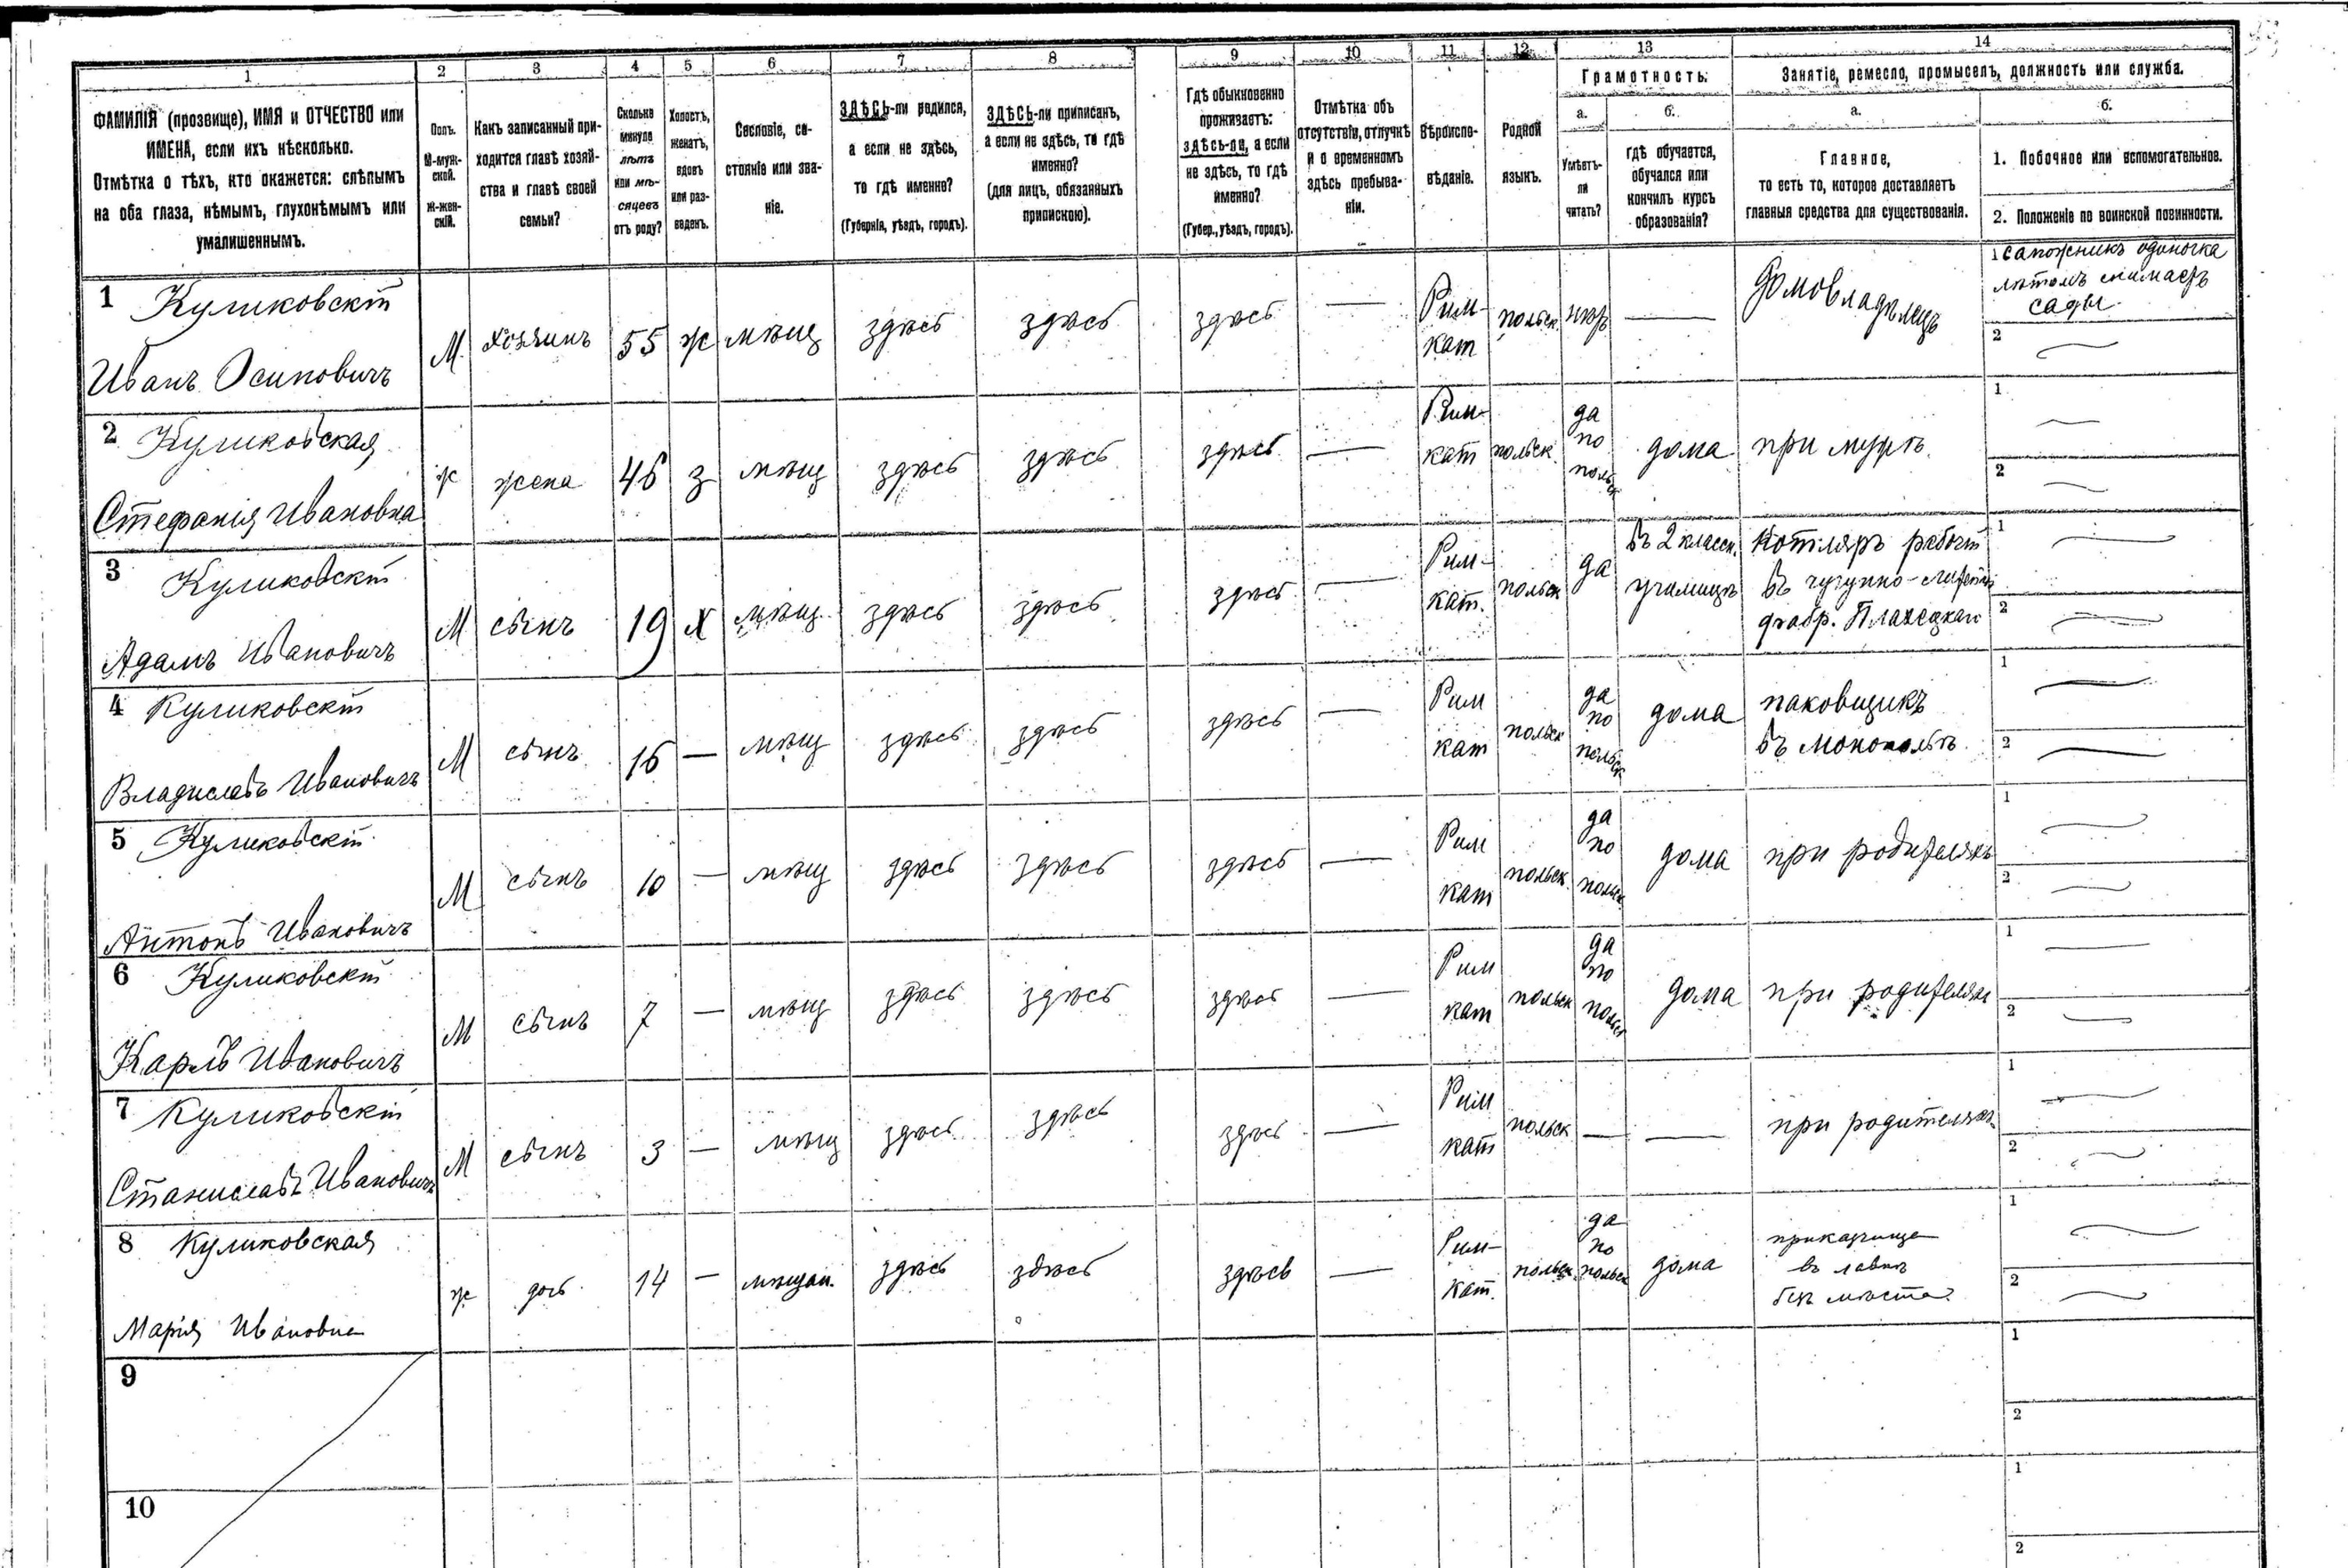 1 2 3 4 5 6 7 8 9 10 11 12 13 14
ФАМИЛІЯ (прозвище), ИМЯ и ОТЧЕСТВО или
ИМЕНА, если ихъ нѣсколько.
Отмѣтка о тѣхъ, кто окажется: слѣпымъ
на оба глаза, нѣмымъ, глухонѣмымъ или
умалишеннымъ.
Полъ.
М-муж-
ской.
Ж-жен-
скій.
Какъ записанный при-
ходится главѣ хозяй-
ства и главѣ своей
семьи?
Сколько
минуло
лѣтъ
или мѣ-
сяцевъ
отъ роду?
Холостъ,
женатъ,
вдовъ
или раз-
веденъ.
Сословіе, со-
стояніе или зва-
ніе.
ЗДѢСЬ-ли родился,
а если не здѣсь,
то гдѣ именно?
(Губернія, уѣздъ, городъ).
ЗДѢСЬ-ли приписанъ,
а если не здѣсь, то гдѣ
именно?
(для лицъ, обязанныхъ
припискою).
Гдѣ обыкновенно
проживаетъ:
здѣсь-ли, а если
не здѣсь, то гдѣ
именно?
(Губер., уѣздъ, городъ).
Отмѣтка объ
отсутствіи, отлучкѣ
и о временномъ
здѣсь пребыва-
ніи.
Вѣроиспо-
вѣданіе.
Родной
языкъ.
Грамотность.
а.
Умѣетъ-
ли
читать?
б.
гдѣ обучается,
обучался или
кончилъ курсъ
образованія?
Занятіе, ремесло, промыселъ, должность или служба.
а.
Главное,
то есть то, которое доставляетъ
главныя средства для существованія.
б.
1. Побочное или вспомогательное.
2. Положеніе по воинской повинности.
1 Куликовскій
Иванъ Осиповичъ
М хозяинъ 55 ж мѣщ здѣсь здѣсь здѣсь —
Рим-
кат
польск. нѣтъ — Домовладѣлецъ
1 сапожникъ одиночка
лѣтомъ снимаетъ
сады
2 —
2 Куликовская
Стефанія Ивановна
ж жена 46 з мѣщ здѣсь здѣсь здѣсь —
Рим-
кат
польск.
да
по
польск
дома при мужѣ
1 —
2 —
3 Куликовскій
Адамъ Ивановичъ
М сынъ 19 х мѣщ. здѣсь здѣсь здѣсь —
Рим-
кат.
польск да
въ 2 класск.
училищѣ
Котляръ рабочій
въ чугунно-литейн
фабр.
1 —
2 —
4 Куликовскій
Владиславъ Ивановичъ
М сынъ 16 — мѣщ здѣсь здѣсь здѣсь —
Рим
кат
польск
да
по
польск
дома
паковщикъ
въ монополіѣ.
1 —
2 —
5 Куликовскій
Антонъ Ивановичъ
М сынъ 10 — мѣщ здѣсь здѣсь здѣсь —
Рим
кат
польск.
да
по
польск.
дома при родителяхъ
1 —
2 —
6 Куликовскій
Карлъ Ивановичъ
М сынъ 7 — мѣщ здѣсь здѣсь здѣсь —
Рим
кат
польск
да
по
польск
дома при родителяхъ
1 —
2 —
7 Куликовскій
Станиславъ Ивановичъ
М сынъ 3 — мѣщ здѣсь здѣсь здѣсь —
Рим
кат
польск — — при родителяхъ
1 —
2 —
8 Куликовская
Марія Ивановна
ж дочь 14 — мѣщан. здѣсь здѣсь здѣсь —
Рим-
кат.
польск.
да
по
польск
дома
приказчица
въ лавкѣ
безъ мѣста
1 —
2 —
9
1
2
10
1
2